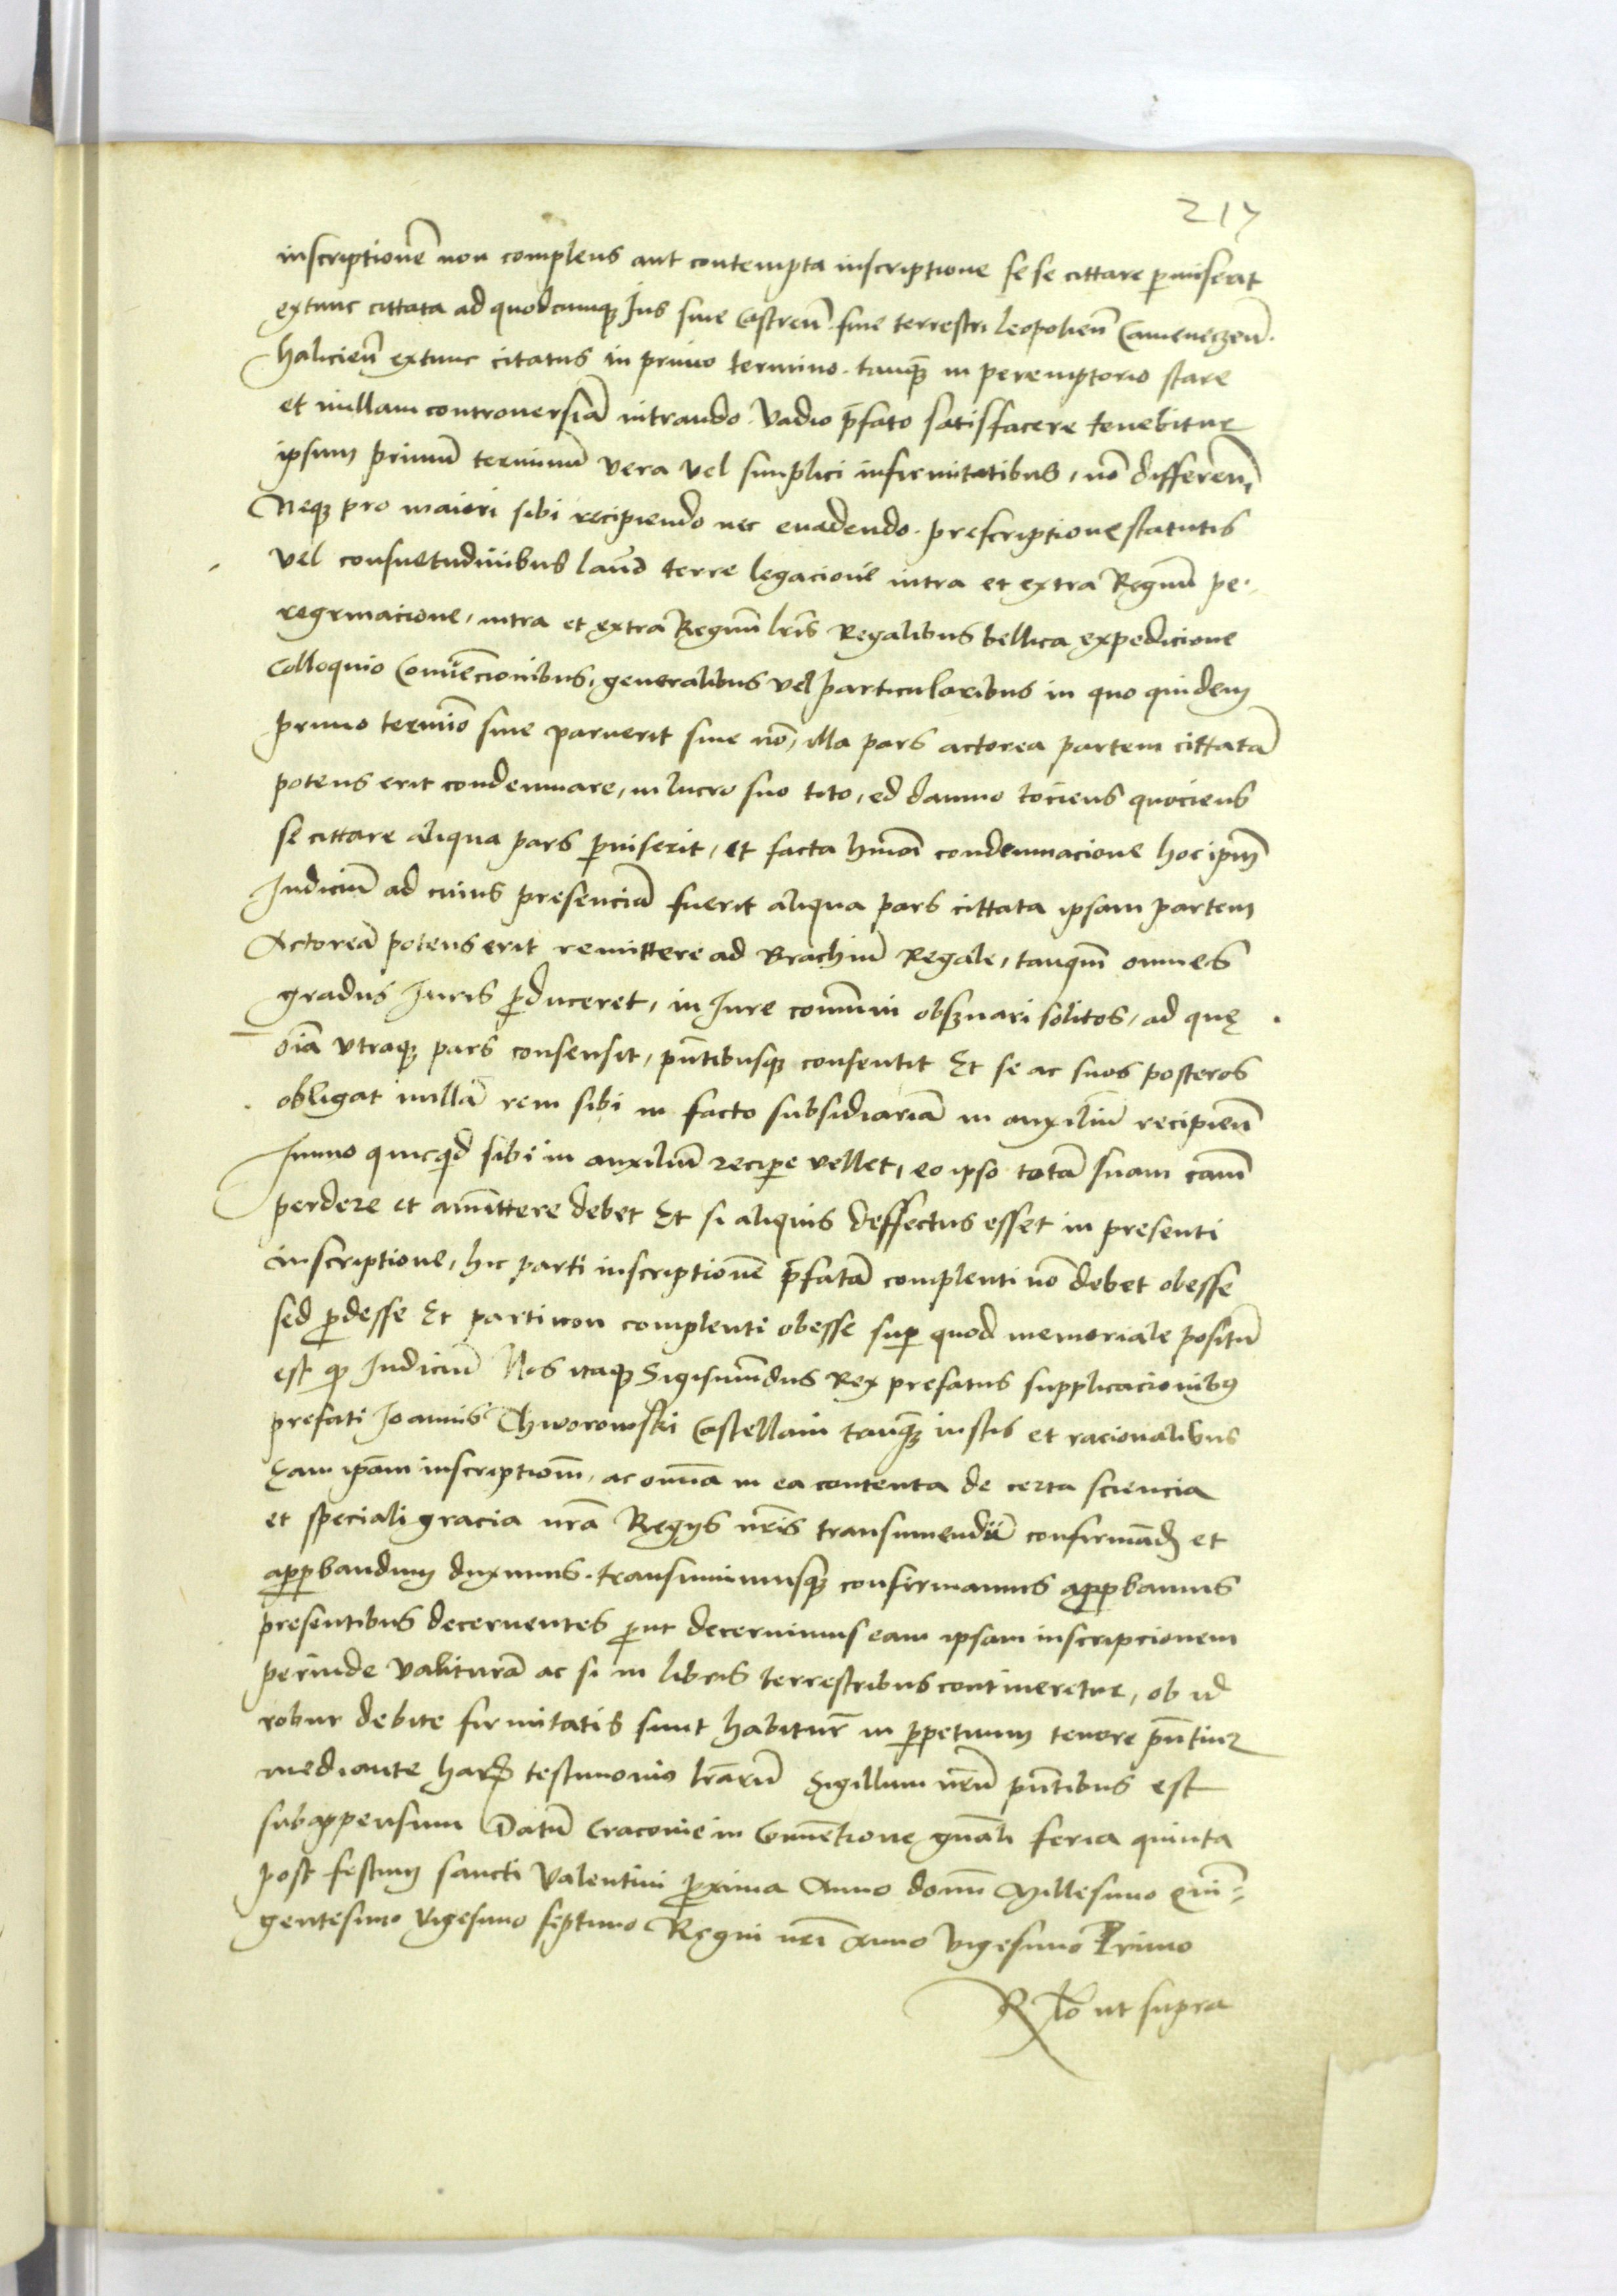 217
inscriptionē non complens aut contempta inscriptione sese cittare pmiserat
extunc cittata ad quodcunqȝ Jus siue Castreñ siue terrestri leopolieñ Cameneczeñ.
halicieñ extunc citatus in primo termino. tanqȝ in peremptorio stare
et nullam controuersiā intrando. Vadio p̄fato satisfacere tenebitur
ipsum primū terminū vera vel simplici infirmitatibus, nō differeñ
Neqȝ pro maiori sibi recipiendo nec euadendo. prescriptione statutis
vel consuetudinibus laudo terre legacione intra et extra Regnū pe-
regrinacione, intra et extra Regnū lr̄is Regalibus bellica expedicione
Colloquio Conuēcionibus, generalibus vel particularibus in quo quidem
primo termīo siue paruerit siue nō, illa pars actorea partem cittatā
potens erit condemnare, in lucro suo toto, ed damno tociens quociens
se cittare aliqua pars pmiserit, et facta hmōi condemnacione hoc ipm̄
Judiciū ad cuius presenciā fuerit aliqua pars cittata ipsam partem
Actoreā potens erit remittere ad Brachiū Regale, tanqm̄ omnes
gradus Juris pduceret, in Jure cōmuni obseruari solitos, ad quę
oīa vtraqȝ pars consensit, pn̄tibusqȝ consentit Et se ac suos posteros
obligat nullā rem sibi in facto subsidiariā in auxiliū recipieñ
Immo quicqd sibi in auxiliū recipe vellet, eo ipso totā suam cām
perdere et am̄ittere debet Et si aliquis deffectus esset in presenti
inscriptione, hic parti inscriptionē p̄fatā complenti nō debet obesse
sed pdesse Et parti non complenti obesse sup quod memoriale positū
est p Judiciū Nos itaqȝ Sigismūdus Rex prefatus supplicacionibꝰ
prefati Joannis Thworowski Castellani tanqȝ iustis et racionalibus
Eam ipam̄ inscriptionē, ac omnia in ea contenta de certa sciencia
et speciali gracia nrā Regys nrīs transumendū confirmādȝ et
appbandum duximus. transumimusqȝ confirmamus appbamus
presentibus decernentes put decernimus eam ipsam inscripcionem
perinde valiturā ac si in libris terrestribus contineretur, ob id
robur debite firmitatis sunt habitur̄ in ppetuum tenore pn̄tiuꝝ
mediante harꝝ testimonio lrārū Sigillum nrū pn̄tibus est
subappensum Datū Cracovie in Conuētione gnāli feria quinta
post festum sancti Valentini pxima Anno domī Millesimo Quin-
gentesimo Vigesimo septimo Regni nrī Anno Vigesimo Primo
Rlō ut supra